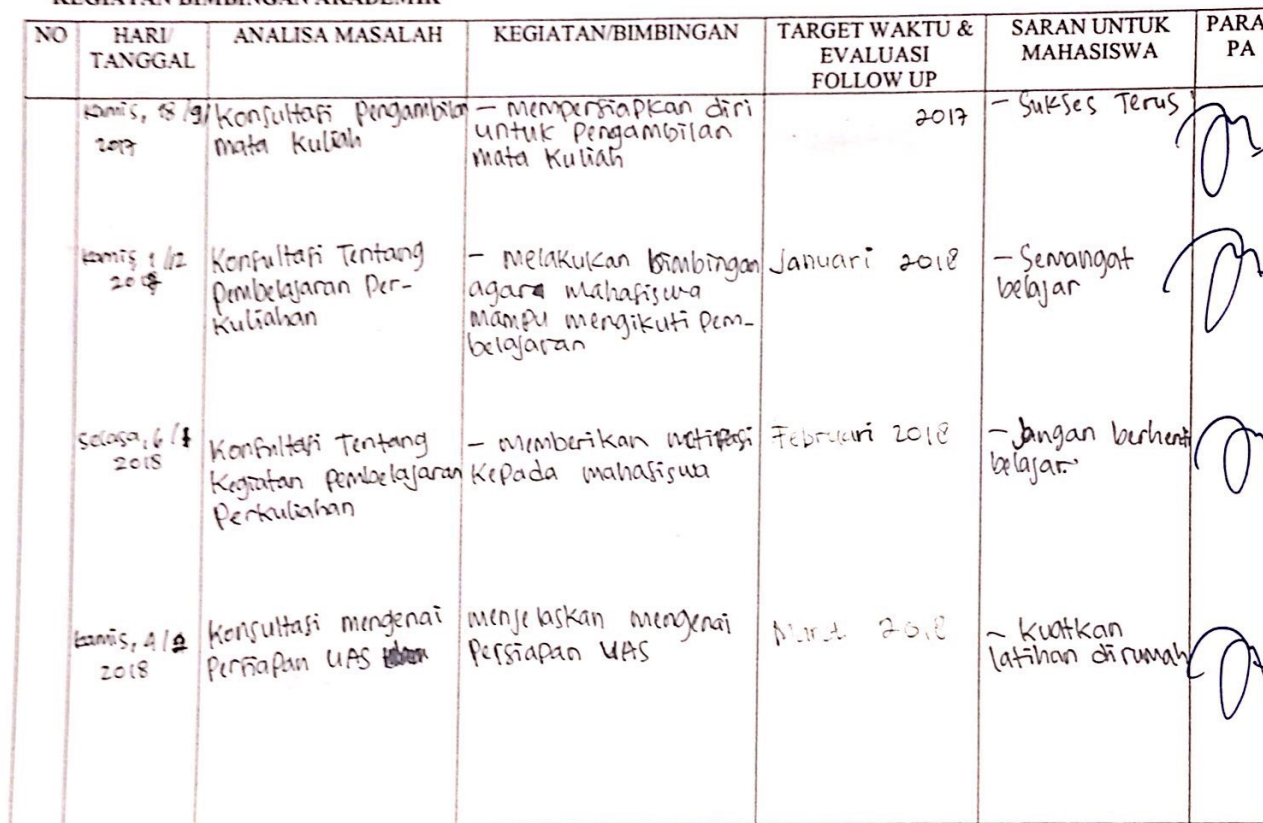 KEGIATAN BIMBINGAN AKADEMIK
NO
HARI/
TANGGAL
ANALISA MASALAH
KEGIATAN/BIMBINGAN
TARGET WAKTU &
EVALUASI
FOLLOW UP
SARAN UNTUK
MAHASISWA
PARA
PA
Kamis, 18/9/
2017
Konsultasi Pengambilan
mata kuliah
- mempersiapkan diri
untuk Pengambilan
mata kuliah
2017
- Sukses Terus
Kamis 1/12
Konsultasi Tentang
Pembelajaran Per-
kuliahan
- Melakukan bimbingan
agar mahasiswa
mampu mengikuti Pem-
belajaran
Januari 2018
- Semangat
belajar
Selasa, 6/
2018
Konsultasi Tentang
Kegiatan pembelajaran
Perkuliahan
- memberikan
kepada mahasiswa
Februari 2018
- Jangan berhenti
belajar
Kamis, 4/
2018
Konsultasi mengenai
Persiapan UAS
menjelaskan mengenai
Persiapan UAS
Maret 2018
- Kuatkan
latihan dirumah